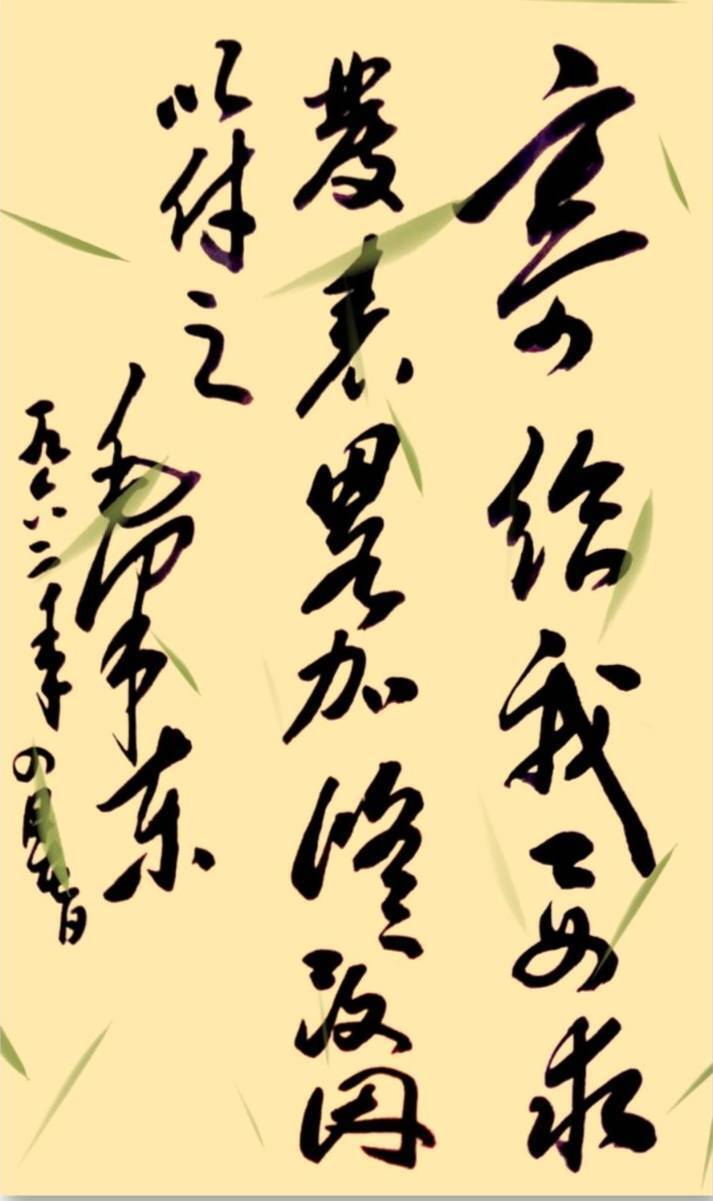 寄给我要求
發表畧加修改因
以付之
毛泽东
一九六二年四月